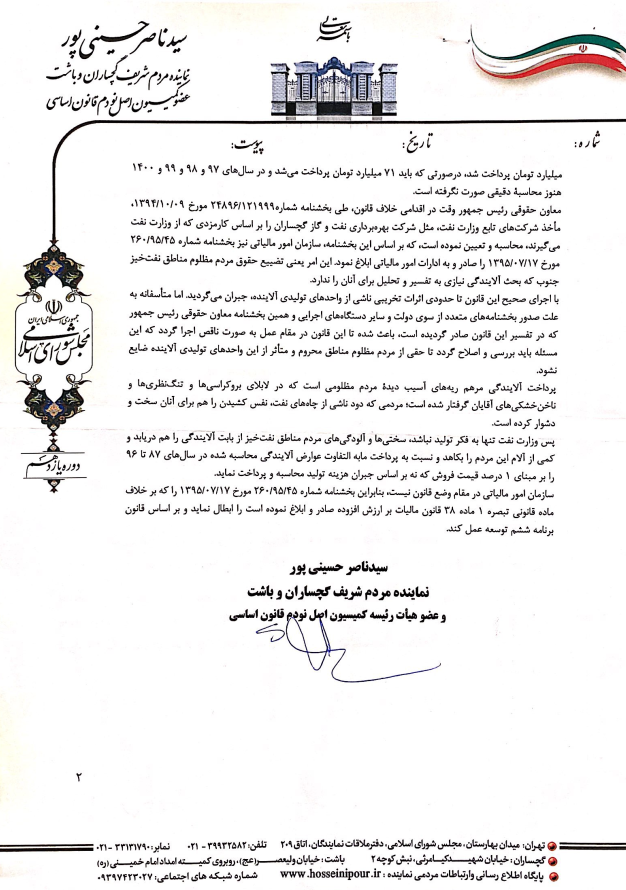 باسمه تعالی
سیدناصر حسینی پور
نماینده مردم شریف گچساران و باشت
عضو کمیسیون اصل نودم قانون اساسی
شماره:
تاریخ:
پیوست:
میلیارد تومان پرداخت شد، درصورتی که باید ۷۱ میلیارد تومان پرداخت می‌شد و در سال‌های ۹۷ و ۹۸ و ۹۹ و ۱۴۰۰
هنوز محاسبهٔ دقیقی صورت نگرفته است.
معاون حقوقی رئیس جمهور وقت در اقدامی خلاف قانون، طی بخشنامه شماره۲۴۸۹۶/۱۲۱۹۹۹ مورخ ۱۳۹۴/۱۰/۰۹،
مأخذ شرکت‌های تابع وزارت نفت، مثل شرکت بهره‌برداری نفت و گاز گچساران را بر اساس کارمزدی که از وزارت نفت
می‌گیرند، محاسبه و تعیین نموده است، که بر اساس این بخشنامه، سازمان امور مالیاتی نیز بخشنامه شماره ۲۶۰/۹۵/۴۵
مورخ ۱۳۹۵/۰۷/۱۷ را صادر و به ادارات امور مالیاتی ابلاغ نمود. این امر یعنی تضییع حقوق مردم مظلوم مناطق نفت‌خیز
جنوب که بحث آلایندگی نیازی به تفسیر و تحلیل برای آنان را ندارد.
با اجرای صحیح این قانون تا حدودی اثرات تخریبی ناشی از واحدهای تولیدی آلاینده، جبران می‌گردید. اما متأسفانه به
علت صدور بخشنامه‌های متعدد از سوی دولت و سایر دستگاه‌های اجرایی و همین بخشنامه معاون حقوقی رئیس جمهور
که در تفسیر این قانون صادر گردیده است، باعث شده تا این قانون در مقام عمل به صورت ناقص اجرا گردد که این
مسئله باید بررسی و اصلاح گردد تا حقی از مردم مظلوم مناطق محروم و متأثر از این واحدهای تولیدی آلاینده ضایع
نشود.
پرداخت آلایندگی مرهم ریه‌های آسیب دیدهٔ مردم مظلومی است که در لابلای بروکراسی‌ها و تنگ‌نظری‌ها و
ناخن‌خشکی‌های آقایان گرفتار شده است؛ مردمی که دود ناشی از چاه‌های نفت، نفس کشیدن را هم برای آنان سخت و
دشوار کرده است.
پس وزارت نفت تنها به فکر تولید نباشد، سختی‌ها و آلودگی‌های مردم مناطق نفت‌خیز از بابت آلایندگی را هم دریابد و
کمی از آلام این مردم را بکاهد و نسبت به پرداخت مابه التفاوت عوارض آلایندگی محاسبه شده در سال‌های ۸۷ تا ۹۶
را بر مبنای ۱ درصد قیمت فروش که نه بر اساس جبران هزینه تولید محاسبه و پرداخت نماید.
سازمان امور مالیاتی در مقام وضع قانون نیست، بنابراین بخشنامه شماره ۲۶۰/۹۵/۴۵ مورخ ۱۳۹۵/۰۷/۱۷ را که بر خلاف
ماده قانونی تبصره ۱ ماده ۳۸ قانون مالیات بر ارزش افزوده صادر و ابلاغ نموده است را ابطال نماید و بر اساس قانون
برنامه ششم توسعه عمل کند.
جمهوری اسلامی ایران
مجلس شورای اسلامی
دوره یازدهم
سیدناصر حسینی پور
نماینده مردم شریف گچساران و باشت
و عضو هیأت رئیسه کمیسیون اصل نودم قانون اساسی
۲
تهران: میدان بهارستان، مجلس شورای اسلامی، دفترملاقات نمایندگان، اتاق ۲۰۹ تلفن: ۳۹۹۳۲۵۸۲ - ۰۲۱ نمابر: ۳۳۱۳۱۷۹۰ - ۰۲۱
گچساران: خیابان شهید کیامرثی، نبش کوچه ۲ باشت: خیابان ولیعصر(عج)، روبروی کمیته امداد امام خمینی (ره)
پایگاه اطلاع رسانی وارتباطات مردمی نماینده : www.hosseinipour.ir شماره شبکه های اجتماعی: ۰۹۳۹۷۴۲۳۰۲۷